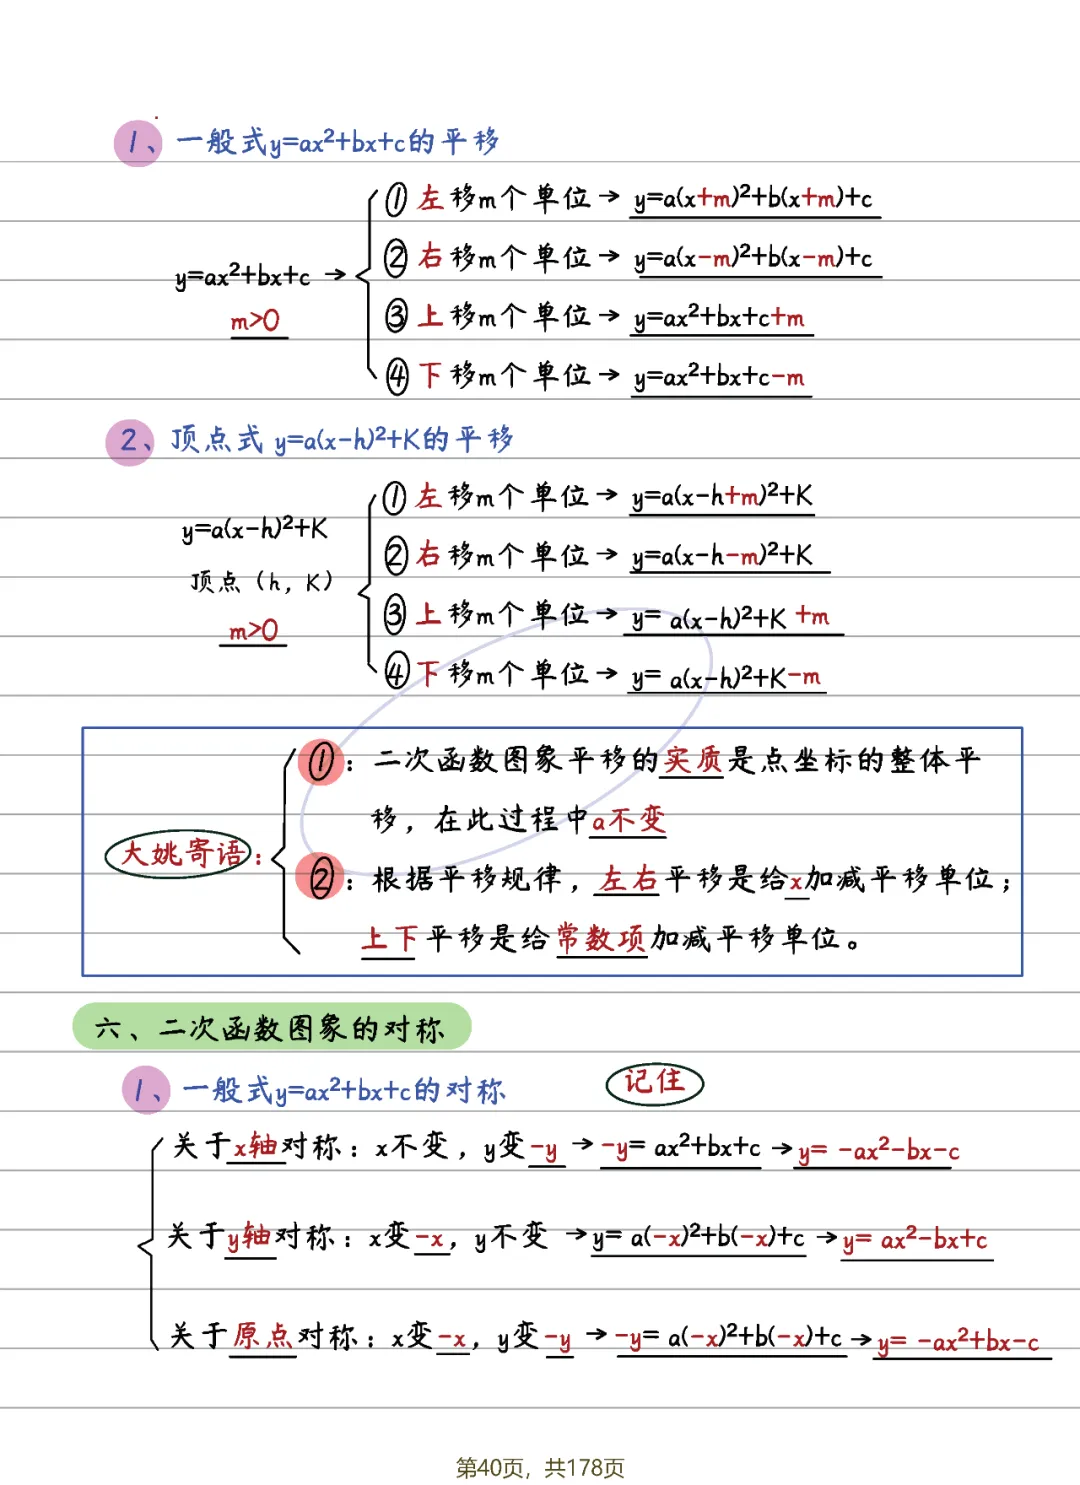 1、一般式y=ax²+bx+c的平移
①左移m个单位→ y=a(x+m)²+b(x+m)+c
②右移m个单位→ y=a(x-m)²+b(x-m)+c
y=ax²+bx+c →
m>0
③上移m个单位→ y=ax²+bx+c+m
④下移m个单位→ y=ax²+bx+c-m
2、顶点式 y=a(x-h)²+K的平移
①左移m个单位→ y=a(x-h+m)²+K
y=a(x-h)²+K
②右移m个单位→ y=a(x-h-m)²+K
顶点（h，K）
③上移m个单位→ y= a(x-h)²+K +m
m>0
④下移m个单位→ y= a(x-h)²+K-m
①：二次函数图象平移的实质是点坐标的整体平
移，在此过程中a不变
大姚寄语：
②：根据平移规律，左右平移是给x加减平移单位；
上下平移是给常数项加减平移单位。
六、二次函数图象的对称
1、一般式y=ax²+bx+c的对称 记住
关于x轴对称：x不变，y变-y → -y= ax²+bx+c → y= -ax²-bx-c
关于y轴对称：x变-x，y不变 → y= a(-x)²+b(-x)+c → y= ax²-bx+c
关于原点对称：x变-x，y变-y → -y= a(-x)²+b(-x)+c → y= -ax²+bx-c
第40页，共178页